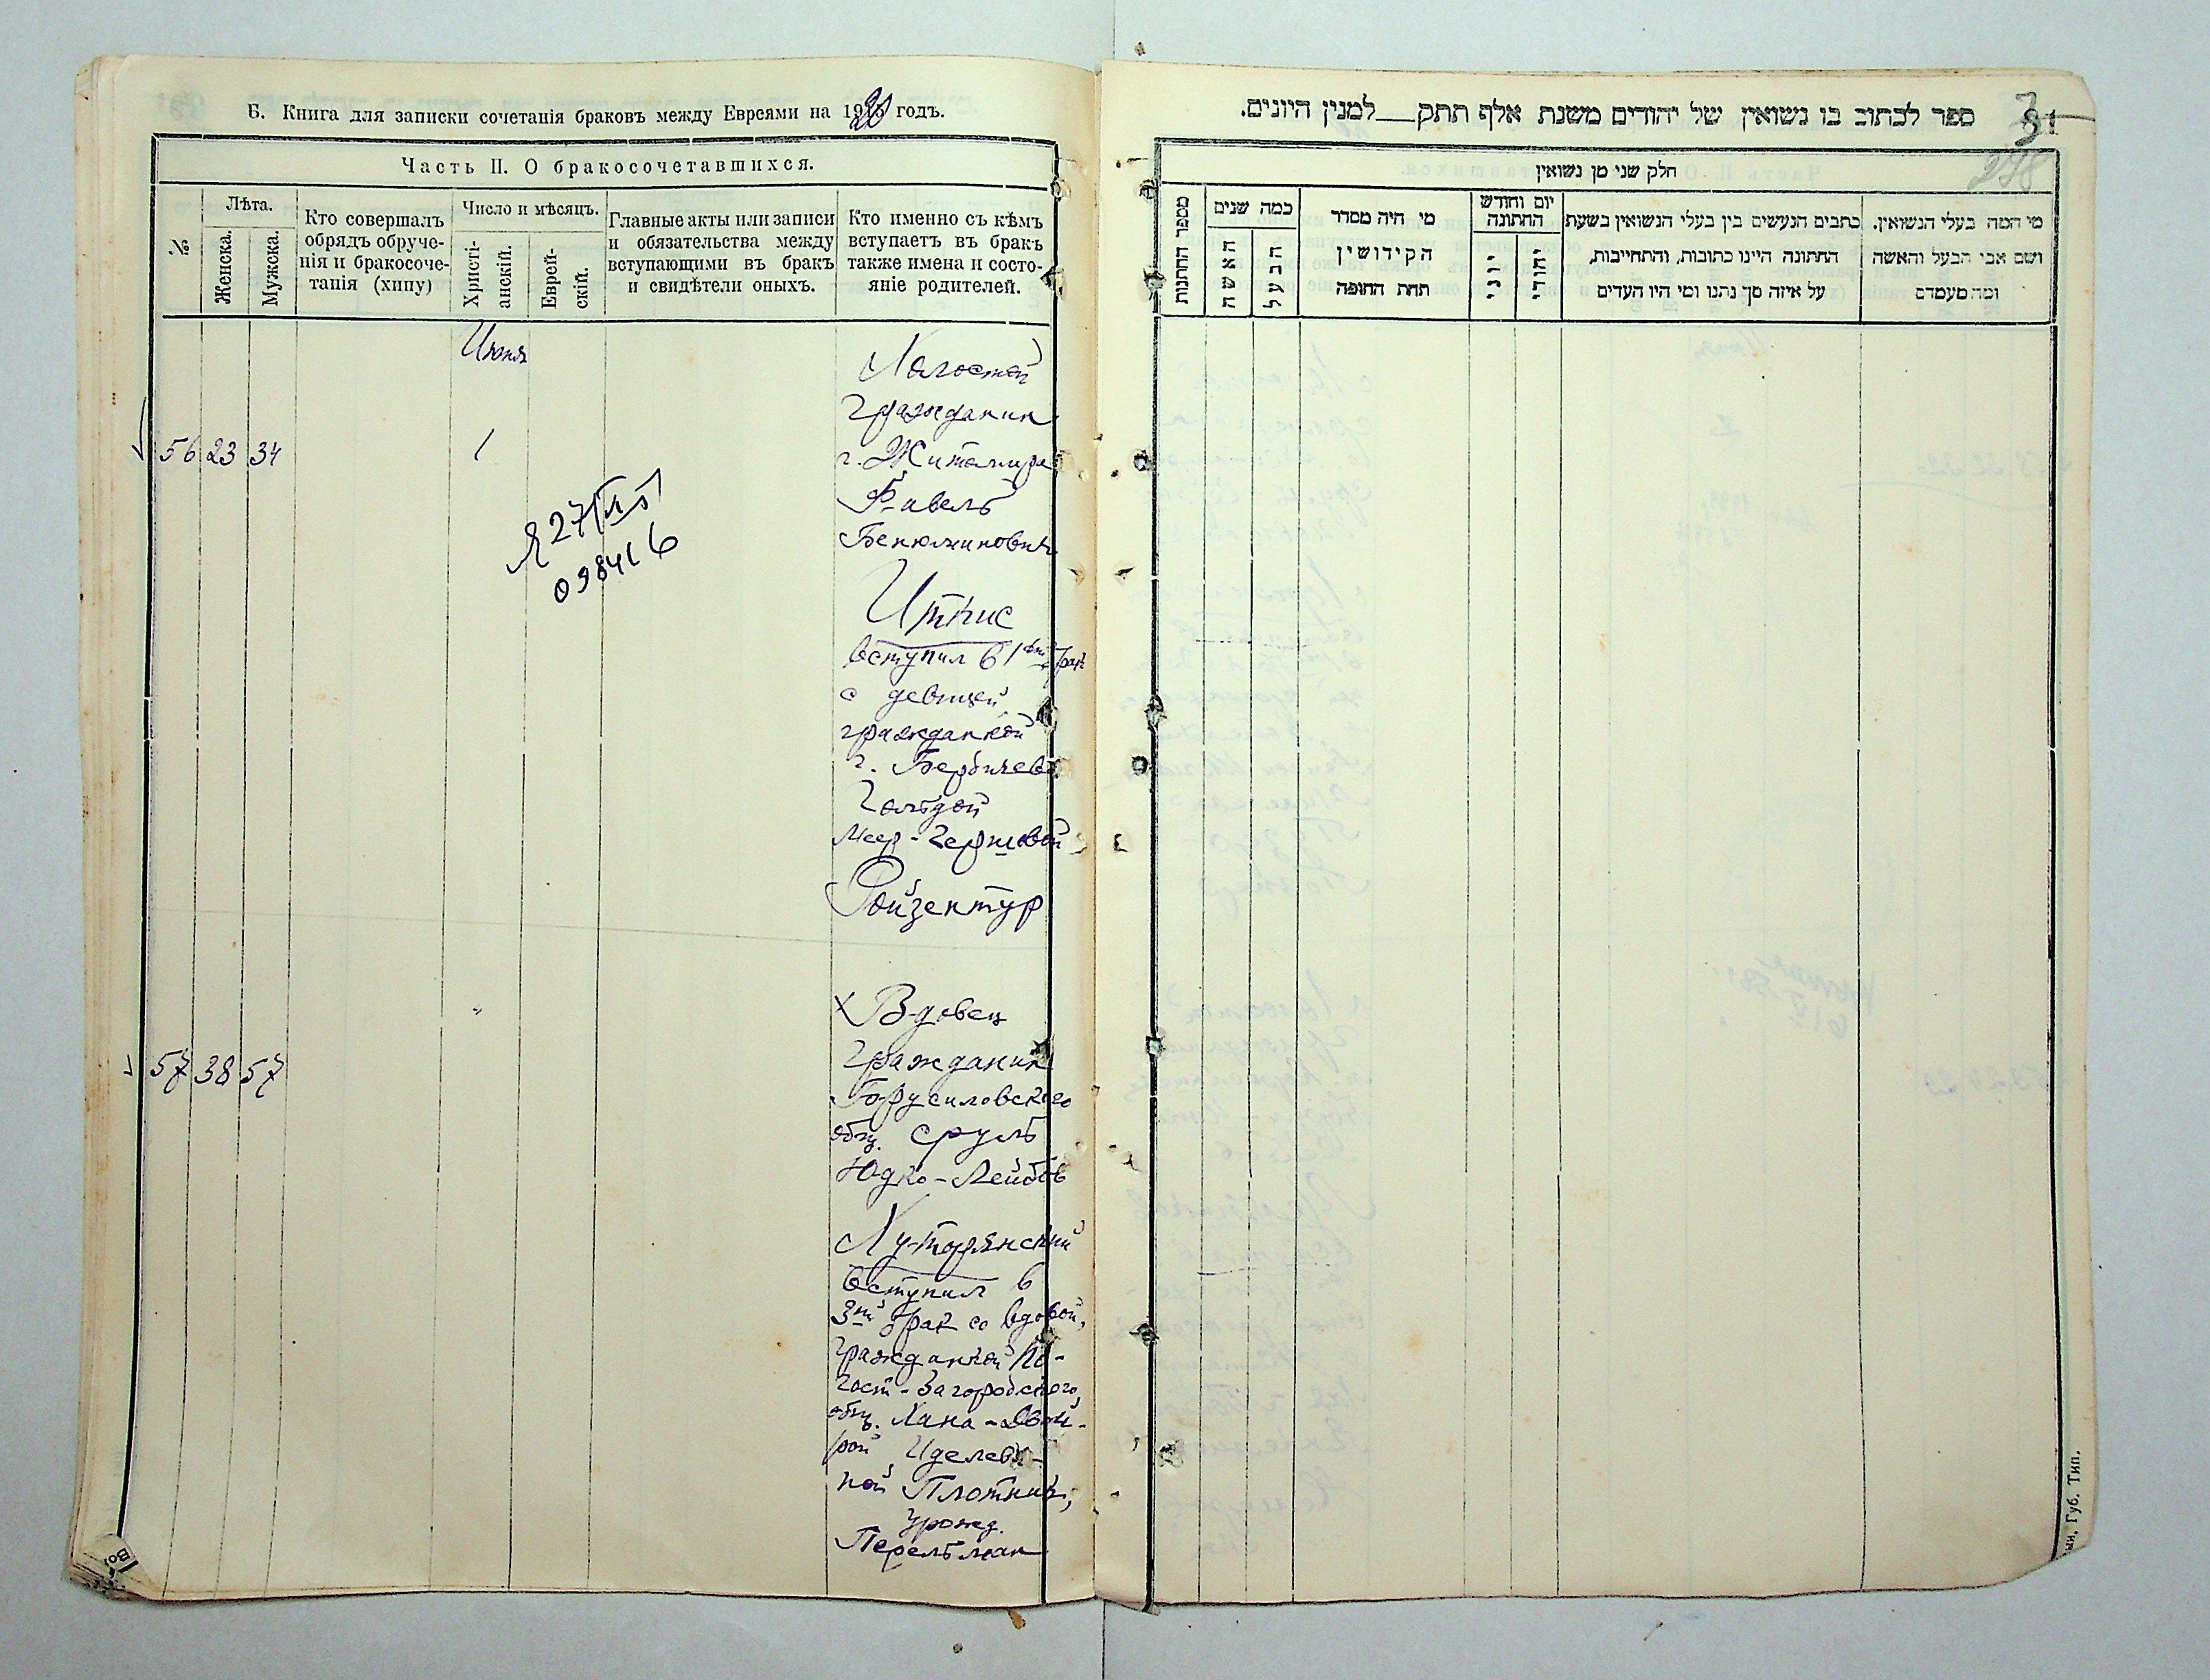 Б. Книга для записки сочетанія браковъ между Евреями на 1920 годъ.
Часть II. О бракосочетавшихся.
№
Лѣта.
Женска.
Мужска.
Кто совершалъ
обрядъ обруче-
нія и бракосоче-
танія (хипу)
Число и мѣсяцъ.
Христі-
анскій.
Еврей-
скій.
Главные акты или записи
и обязательства между
вступающими въ бракъ
и свидѣтели оныхъ.
Кто именно съ кѣмъ
вступаетъ въ бракъ
также имена и состо-
яніе родителей.
Июня
56 23 34
1
Холостой
гражданин
г. Житомира
Файвель
Бенюминович
Иткис
вступил в 1ый брак
с девицей
гражданкой
г. Бердичева
Гольдой
Меер-Гершовой
Ройзентур
098416
57 38 57
"
Х Вдовец
гражданин
общ. Сруль
Юдко-Лейбов
Хуторянский
вступил в
3ий брак со вдовой,
гражданкой По-
гост-Загородского
общ. Хана-Двой-
рой Иделев-
ной Плотник,
урожд.
Перельман
ספר לכתוב בו נשואין של יהודים משנת אלף תתק__למנין היונים.
31
278
חלק שני מן נשואין
מספר החתונות
כמה שנים
האשה
הבעל
מי היה מסדר
הקידושין
תחת החופה
יום וחודש
החתונה
יוני
יהודי
כתבים הנעשים בין בעלי הנשואין בשעת
החתונה היינו כתובות, והתחייבות,
על איזה סך נתנו ומי היו העדים
מי המה בעלי הנשואין.
ושם אבי הבעל והאשה
ומה מעמדם
Губ. Тип.